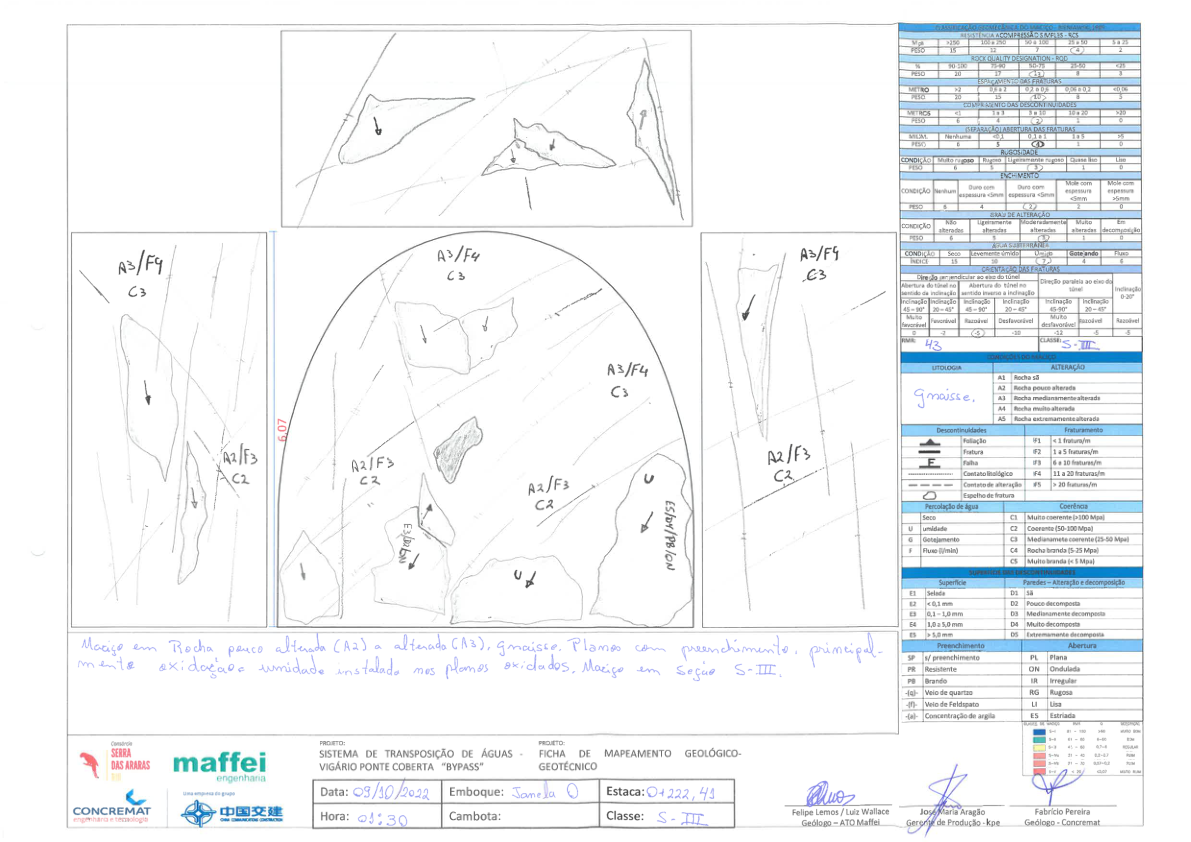 A3/F4
C3
A2/F3
C2
6,07
A3/F4
C3
A3/F4
C3
A2/F3
C2
A2/F3
C2
U
U
A3/F4
C3
A2/F3
C2
Maciço em Rocha pouco alterada (A2) a alterada (A3), gnaisse. Planos com preenchimento, principal-
mente oxidação e umidade instalado nos planos oxidados, Maciço em Seção S-III.
RESISTÊNCIA A COMPRESSÃO SIMPLES - RCS
Mpa >250 100 a 250 50 a 100 25 a 50 5 a 25
PESO 15 12 7 4 2
ROCK QUALITY DESIGNATION - RQD
% 90-100 75-90 50-75 25-50 <25
PESO 20 17 13 8 3
ESPAÇAMENTO DAS FRATURAS
METRO >2 0,6 a 2 0,2 a 0,6 0,06 a 0,2 <0,06
PESO 20 15 10 8 5
COMPRIMENTO DAS DESCONTINUIDADES
METROS <1 1 a 3 3 a 10 10 a 20 >20
PESO 6 4 2 1 0
SEPARAÇÃO/ABERTURA DAS FRATURAS
MILIM. Nenhuma <0,1 0,1 a 1 1 a 5 >5
PESO 6 5 4 1 0
RUGOSIDADE
CONDIÇÃO Muito rugoso Rugoso Ligeiramente rugoso Quase liso Liso
PESO 6 5 3 1 0
ENCHIMENTO
CONDIÇÃO Nenhum Duro com espessura <5mm Duro com espessura <5mm Mole com espessura <5mm Mole com espessura >5mm
PESO 6 4 2 2 0
GRAU DE ALTERAÇÃO
CONDIÇÃO Não alteradas Ligeiramente alteradas Moderadamente alteradas Muito alteradas Em decomposição
PESO 6 5 3 1 0
ÁGUA SUBTERRÂNEA
CONDIÇÃO Seco Levemente úmido Úmido Gotejando Fluxo
ÍNDICE 15 10 7 4 0
ORIENTAÇÃO DAS FRATURAS
Direção perpendicular ao eixo do túnel
Direção paralela ao eixo do túnel
Inclinação 0-20°
Abertura do túnel no sentido da inclinação
Abertura do túnel no sentido inverso a inclinação
Inclinação 45 – 90° Inclinação 20 – 45° Inclinação 45 – 90° Inclinação 20 – 45° Inclinação 45-90° Inclinação 20 – 45°
Muito favorável Favorável Razoável Desfavorável Muito desfavorável Razoável Razoável
0 -2 -5 -10 -12 -5 -5
RMR: 43 CLASSE: S-III
CONDIÇÕES DO MACIÇO
LITOLOGIA ALTERAÇÃO
gnaisse.
A1 Rocha sã
A2 Rocha pouco alterada
A3 Rocha medianamente alterada
A4 Rocha muito alterada
A5 Rocha extremamente alterada
Descontinuidades Fraturamento
Foliação IF1 < 1 fratura/m
Fratura IF2 1 a 5 fraturas/m
F Falha IF3 6 a 10 fraturas/m
Contato litológico IF4 11 a 20 fraturas/m
Contato de alteração IF5 > 20 fraturas/m
Espelho de fratura
Percolação de água Coerência
Seco C1 Muito coerente (>100 Mpa)
U umidade C2 Coerente (50-100 Mpa)
G Gotejamento C3 Medianamete coerente (25-50 Mpa)
F Fluxo (l/min) C4 Rocha branda (5-25 Mpa)
C5 Muito branda (< 5 Mpa)
Superfície Paredes – Alteração e decomposição
E1 Selada D1 Sã
E2 < 0,1 mm D2 Pouco decomposta
E3 0,1 – 1,0 mm D3 Medianamente decomposta
E4 1,0 a 5,0 mm D4 Muito decomposta
E5 > 5,0 mm D5 Extremamente decomposta
Preenchimento Abertura
SP s/ preenchimento PL Plana
PR Resistente ON Ondulada
PB Brando IR Irregular
-(q)- Veio de quartzo RG Rugosa
-(f)- Veio de Feldspato LI Lisa
-(a)- Concentração de argila ES Estriada
Consórcio
SERRA
DAS ARARAS
maffei
engenharia
CONCREMAT
engenharia e tecnologia
Uma empresa do grupo
中国交建
CHINA COMMUNICATIONS CONSTRUCTION
PROJETO:
SISTEMA DE TRANSPOSIÇÃO DE ÁGUAS -
VIGÁRIO PONTE COBERTA "BYPASS"
PROJETO:
FICHA DE MAPEAMENTO GEOLÓGICO-
GEOTÉCNICO
Data: 09/10/2022 Emboque: Janela O Estaca: 0+222,41
Hora: 01:30 Cambota: Classe: S-III
Felipe Lemos / Luiz Wallace
Geólogo – ATO Maffei
José Maria Aragão
Gerente de Produção - kpe
Fabrício Pereira
Geólogo - Concremat